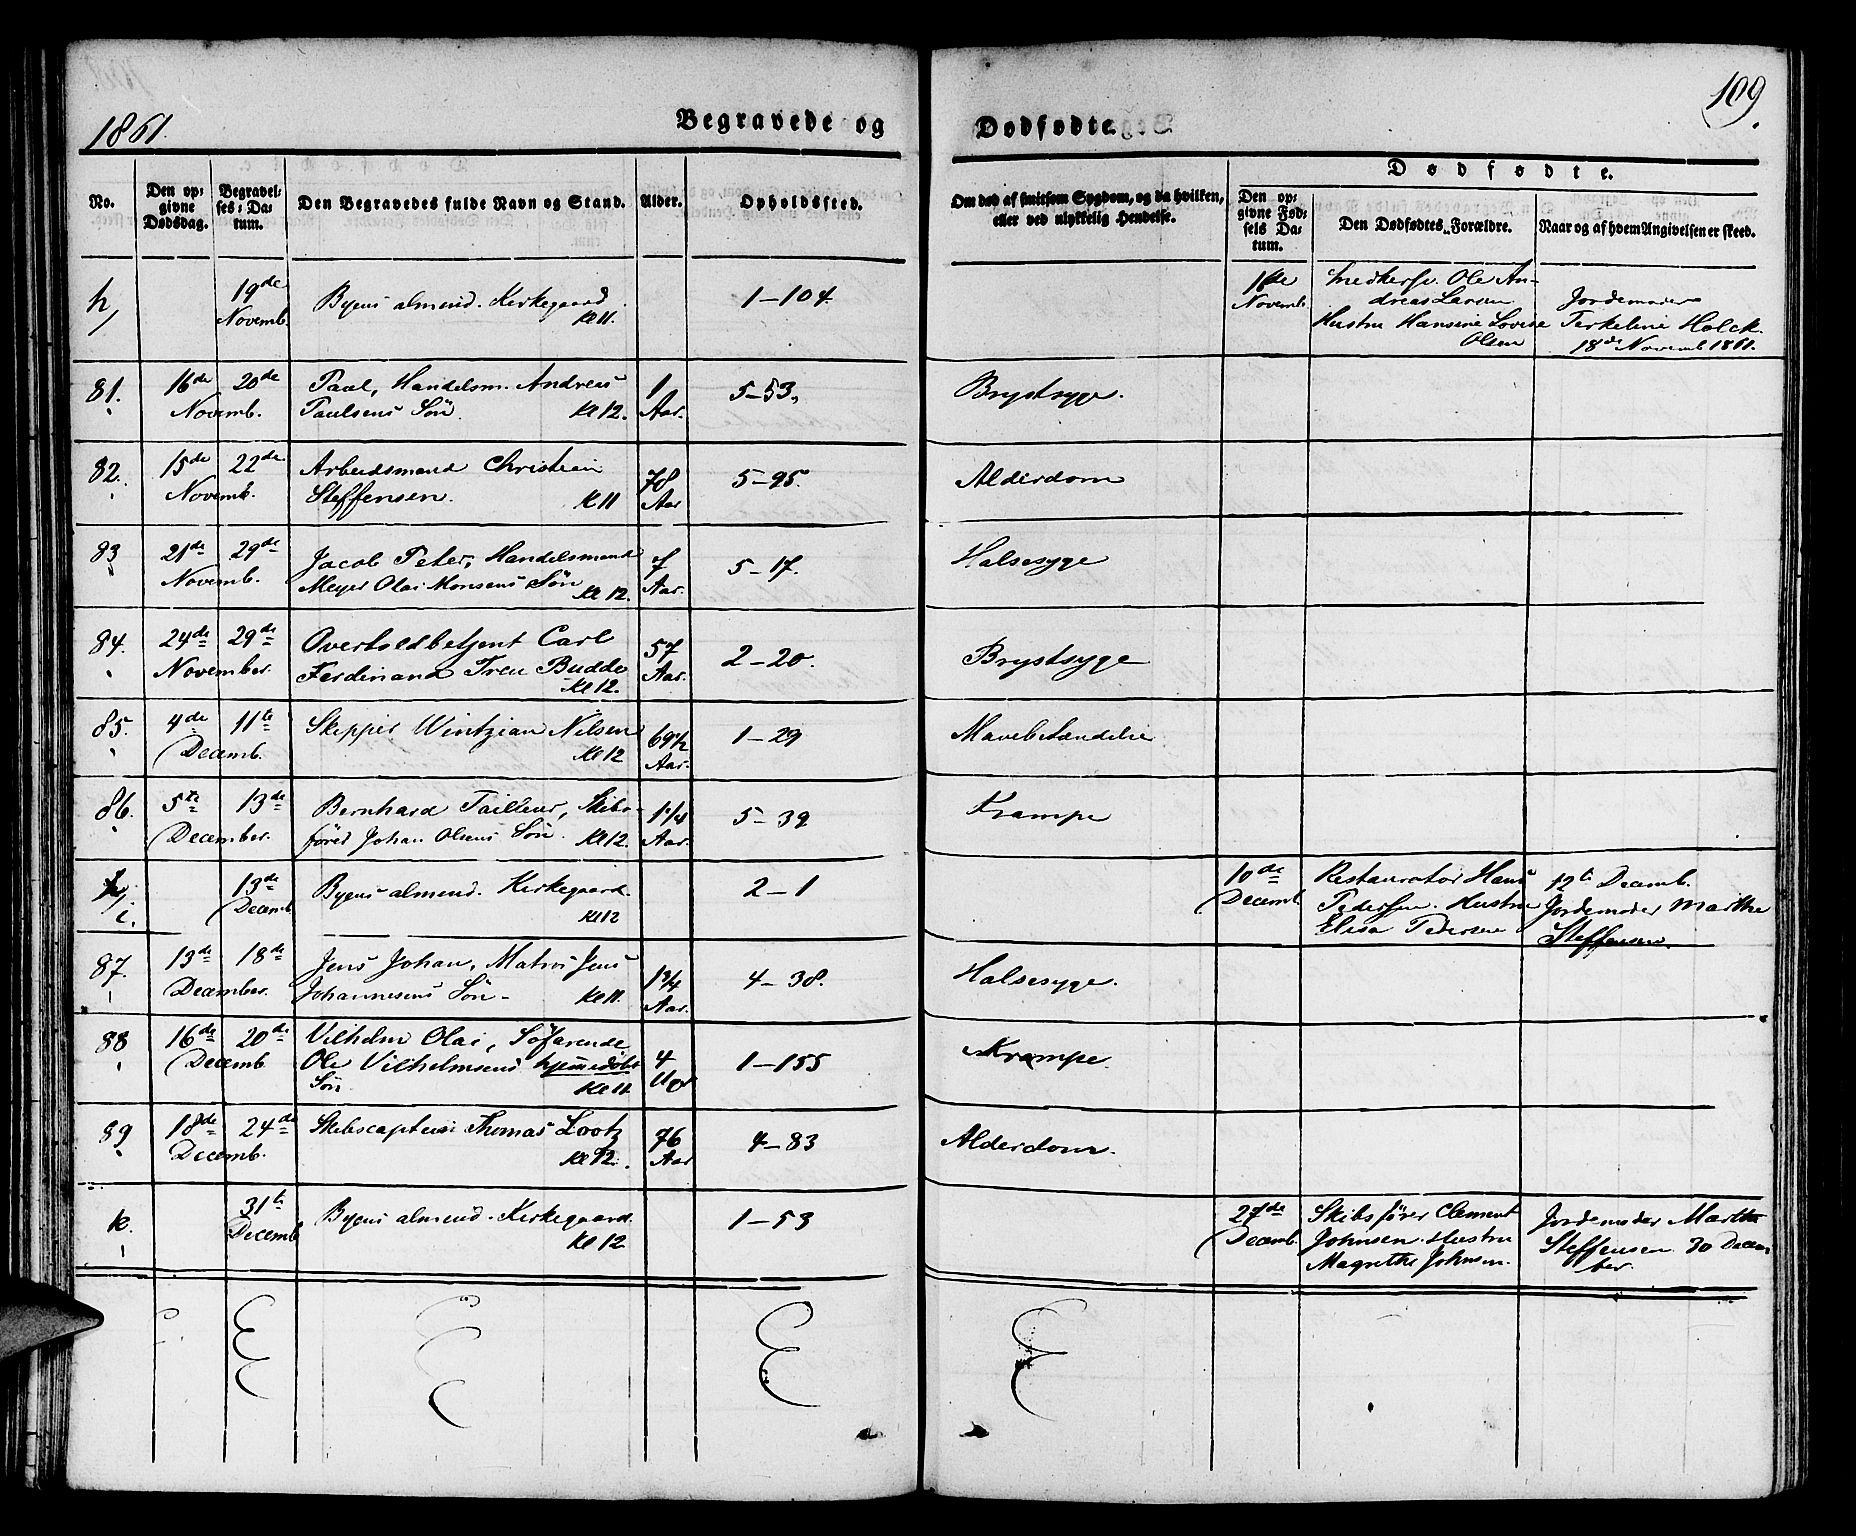 1861.
Begravede og
Dødfødte.
109.
No.
Den op-
givne
Dødsdag.
Begravel-
ses-Da-
tum.
Den Begravedes fulde Navn og Stand.
Alder.
Opholdssted.
Om død af smitsom Sygdom, og da hvilken,
eller ved ulykkelig Hendelse.
Dødfødte.
Den op-
givne Fød-
sels Da-
tum.
Den Dødfødtes Forældre.
Naar og af hvem Angivelsen er skeed.
h,
19de
Novemb.
Byens almind. Kirkegaard
Kl 11.
1-104.
16de
Novemb.
Snedkersv. Ole An-
dreas Larsen
Hustru Hansine Lovise
Olsen
Jordemoder
Terkeline Holck
18de Novemb 1861.
81.
16de
20de
Novemb.
Paul, Handelsm. Andreas
Paulsens Søn.
Kl 12.
1
Aar.
5-53,
Brystsyge.
82.
15de
22de
Novemb.
Arbeidsmand Christian
Steffensen.
Kl 11
78
Aar
5-95.
Alderdom
83
21de
29de
Novemb.
Jacob Peter, Handelsmand
Meyer Olai Monsens Søn
Kl 12.
7
Aar.
5-17.
Halsesyge
84.
24de
29de
November.
Overtoldbetjent Carl
Ferdinand Treu Budde
Kl 12.
57
Aar.
2-20.
Brystsyge
85.
4de
11te
Decemb.
Skipper Wintzian Nilsen
Kl 12
69 1/2
Aar.
1-29
Mavebetændelse
86.
5te
13de
December.
Bernhard Tailleur, Skibs-
fører Johan Olsens Søn.
Kl 12.
1 1/4
Aar.
5-39
Krampe
i.
13de
Decemb
Byens almind. Kirkegaard.
Kl 12
2-1
10de
Decemb
Restauratør Hans
Pedersen. Hustru
Elisa Pedersen
12te Decemb.
Jordemoder Marthe
Steffensen.
87.
13de
18de
December.
Jens Johan, Matros Jens
Johannesens Søn-
Kl 11.
1 3/4
Aar.
4-38.
Halsesyge.
88
16de
20de
Decemb
Vilhelm Olai, Søfarende
Ole Vilhelmsens hjemmedøbt
Søn.
Kl 11.
4
Uger
1-155
Krampe.
89
18de
24de
Decemb.
Skibscaptein Thomas Lootz
Kl 12.
76
Aar
4-83
Alderdom.
k.
31te
Decemb
Byens almind. Kirkegaard.
Kl 12
1-53
27de
Decemb.
Skibsfører Clement
Johnsen. Hustru
Magrethe Johnsen.
Jordemoder Marthe
Steffensen 30 Decem
ber.